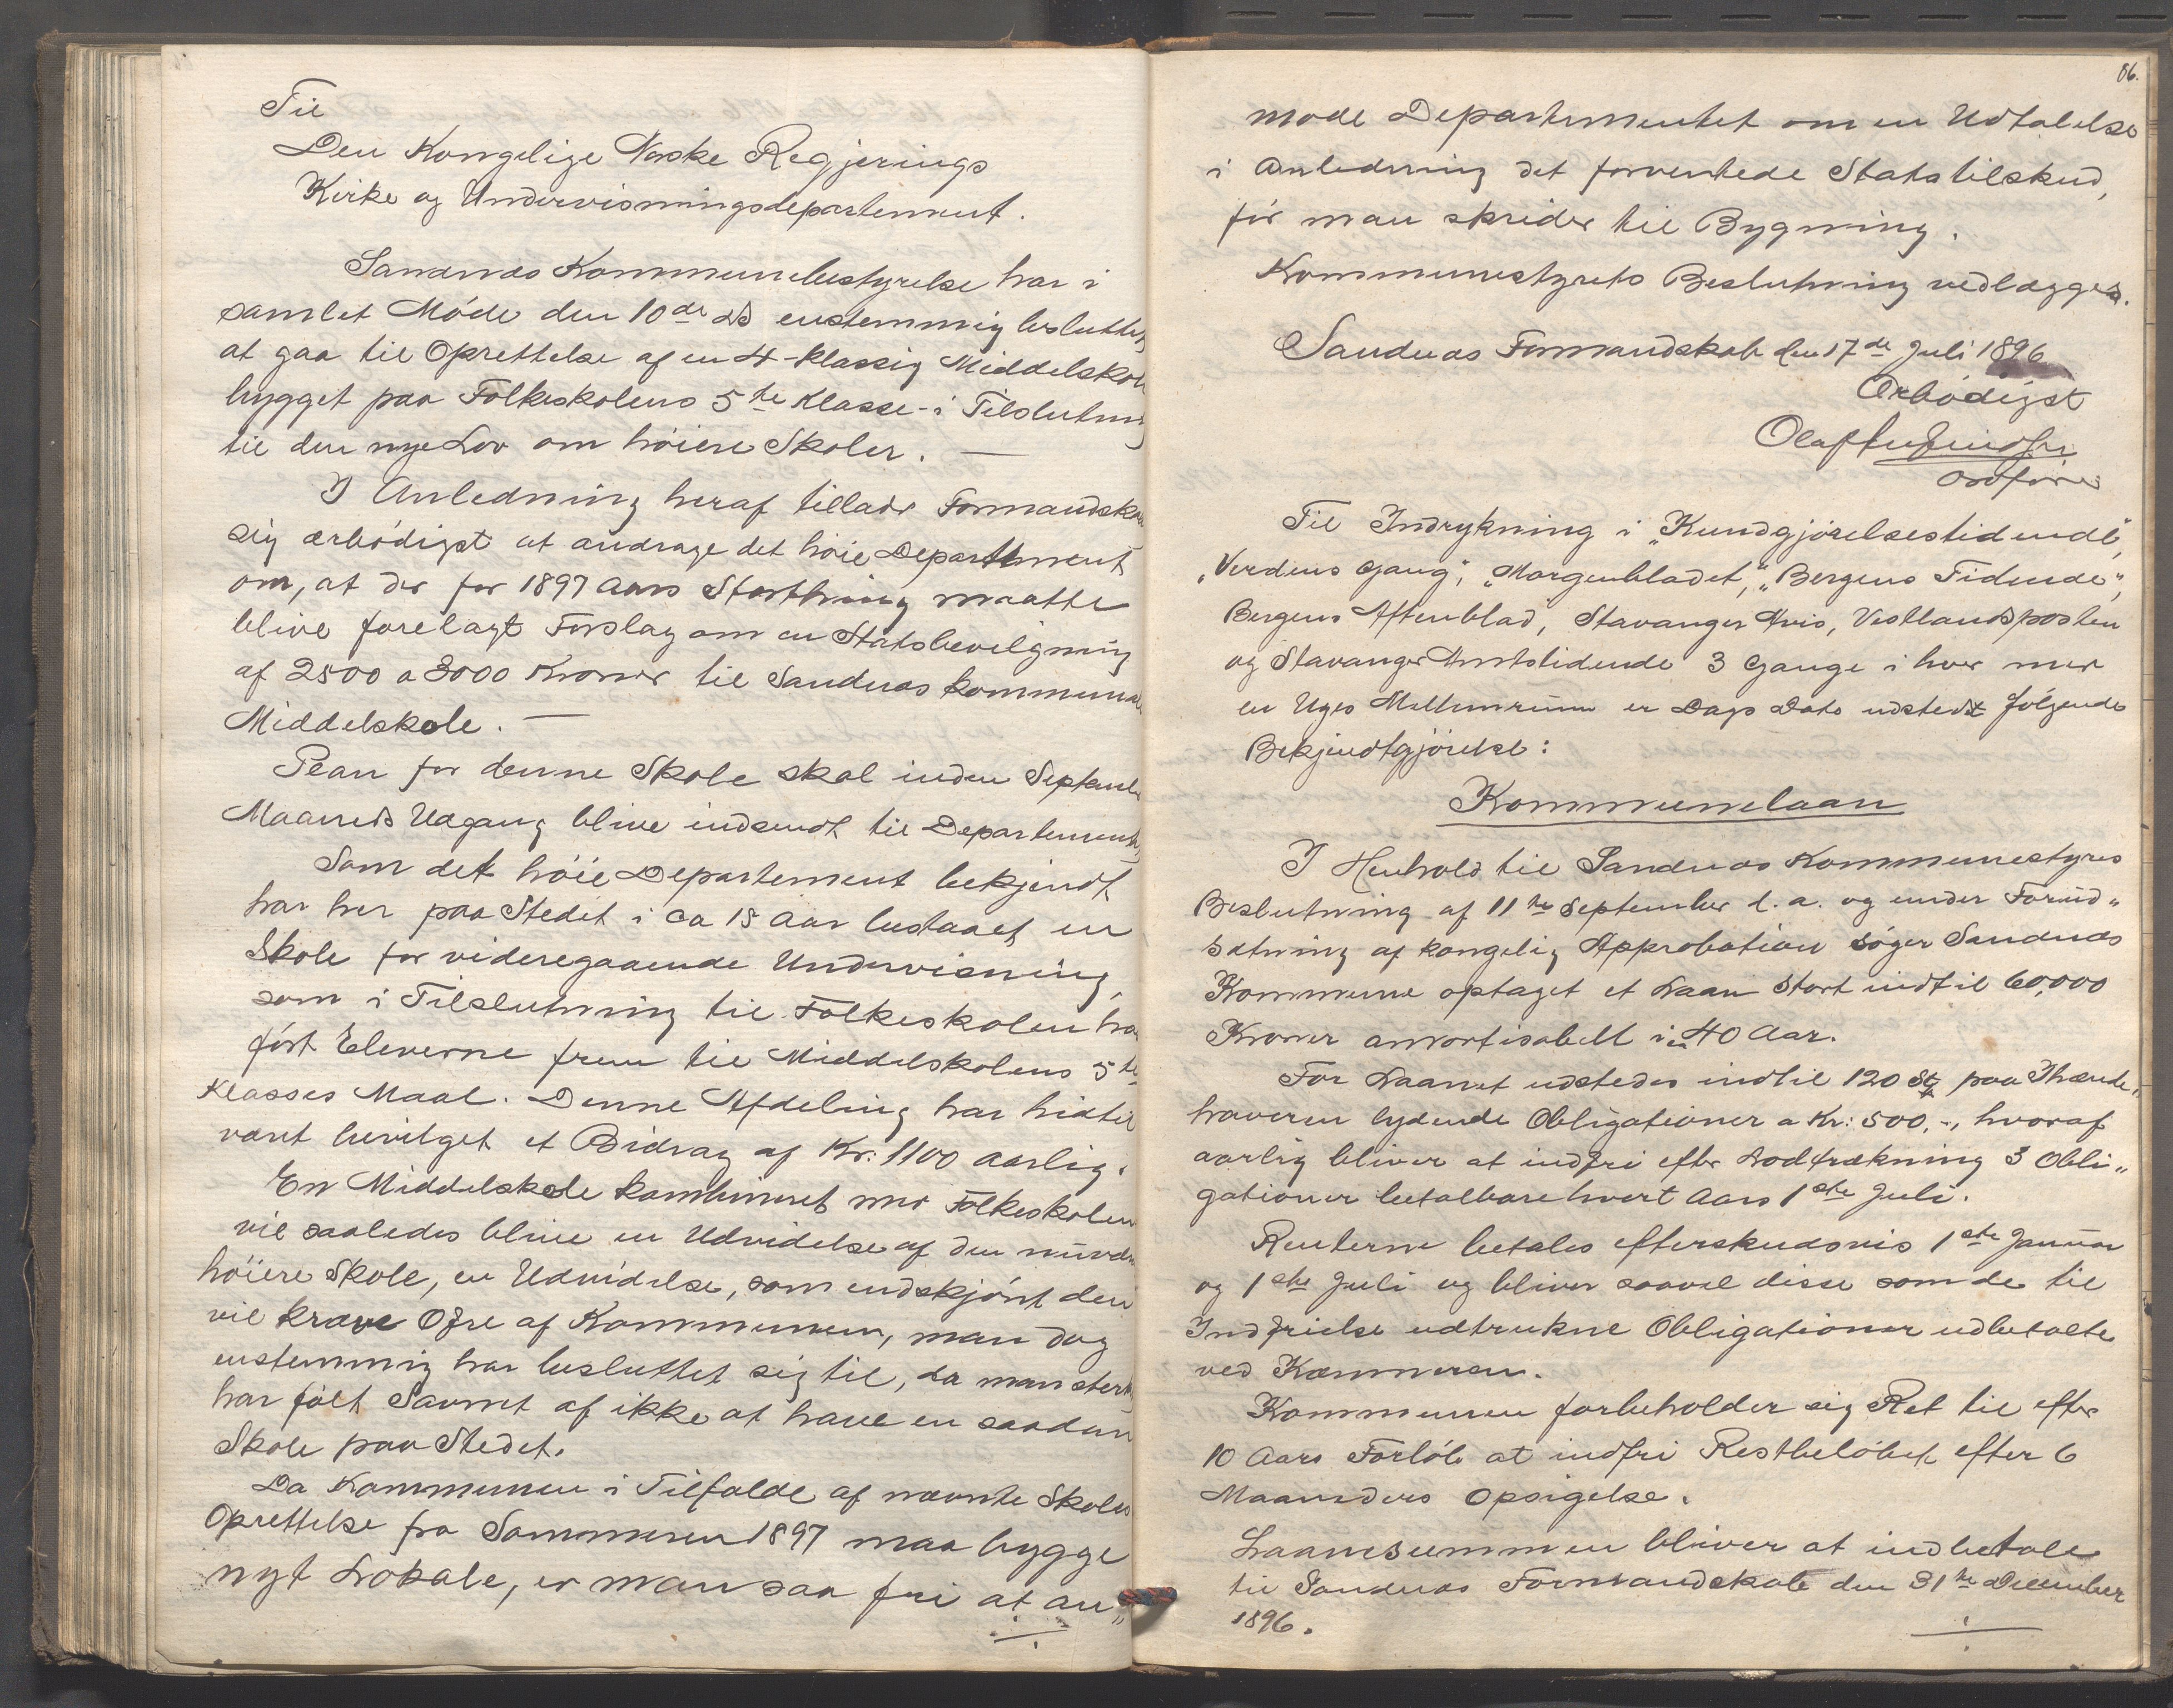 Til
Den Kongelige Norske Regjerings
Kirke og Undervisningsdepartement.
Sandnæs Kommunebestyrelse har i
samlet Møde den 10de ds enstemmig besluttet
at gaa til Oprettelse af en 4-klassig Middelskole
bygget paa Folkeskolens 5te Klasse - i Tilslutning
til den nye Lov om høiere Skoler. —
I Anledning heraf tillader Formandskabet
sig ærbødigst at andrage det høie Departement
om, at der for 1897 Aars Storthing maatte
blive forelagt Forslag om en Statsbevilgning
af 2500 a 3000 Kroner til Sandnæs kommunale
Middelskole. —
Plan for denne Skole skal inden September
Maaneds Udgang blive indsendt til Departementet,
Som det høie Departement bekjendt
har her paa Stedet i ca 18 Aar bestaaet en
Skole for videregaaende Undervisning,
som i Tilslutning til Folkeskolen har
ført Eleverne frem til Middelskolens 5te
Klasses Maal. Denne Afdeling har hidtil
været bevilget et Bidrag af Kr. 1100 aarlig.
En Middelskole kombineret med Folkeskolen
vil saaledes blive en Udvidelse af den nuværende
høiere Skole, en Udvidelse, som endskjønt den
vil kræve Ofre af Kommunen, man dog
enstemmig har besluttet sig til, da man sterkt
har følt Savnet af ikke at have en saadan
Skole paa Stedet.
Da Kommunen i Tilfælde af nævnte Skoles
Oprettelse fra Sommeren 1897 maa bygge
nyt Lokale, er man saa fri at an„
86.
mode Departementet om en Udtalelse
i Anledning det forventede Statstilskud,
før man skrider til Bygning.
Kommunestyrets Beslutning vedlægges.
Sandnæs Formandskab den 17de Juli 1896
Ærbødigst
Olaf
Ordfører
Til Indrykning i „Kundgjørelsestidende",
„Verdens Gang", „Morgenbladet", „Bergens Tidende",
Bergens Aftenblad, Stavanger Avis, Vestlandsposten
og Stavanger Amtstidende 3 Gange i hver med
en Uges Mellemrum er Dags Dato udstedt følgende
Bekjendtgjørelse:
Kommunelaan
I Henhold til Sandnæs Kommunestyres
Beslutning af 11te September d. a. og under Forud„
sætning af kongelig Approbation søger Sandnæs
Kommune optaget et Laan stort indtil 60,000
Kroner amortisabelt i 40 Aar.
For Laanet udstedes indtil 120 St paa Ihænde„
haveren lydende Obligationer a Kr: 500,-, hvoraf
aarlig bliver at indfri efter Lodtrækning 3 Obli„
gationer betalbare hvert Aars 1ste Juli.
Renterne betales efterskudsvis 1ste Januar
og 1ste Juli og bliver saavel disse som de til
Indfrielse udtrukne Obligationer udbetalte
ved Kæmneren.
Kommunen forbeholder sig Ret til efter
10 Aars Forløb at indfri Restbeløbet efter 6
Maaneders Opsigelse.
Laanesummen bliver at indbetale
til Sandnæs Formandskab den 31te December
1896.